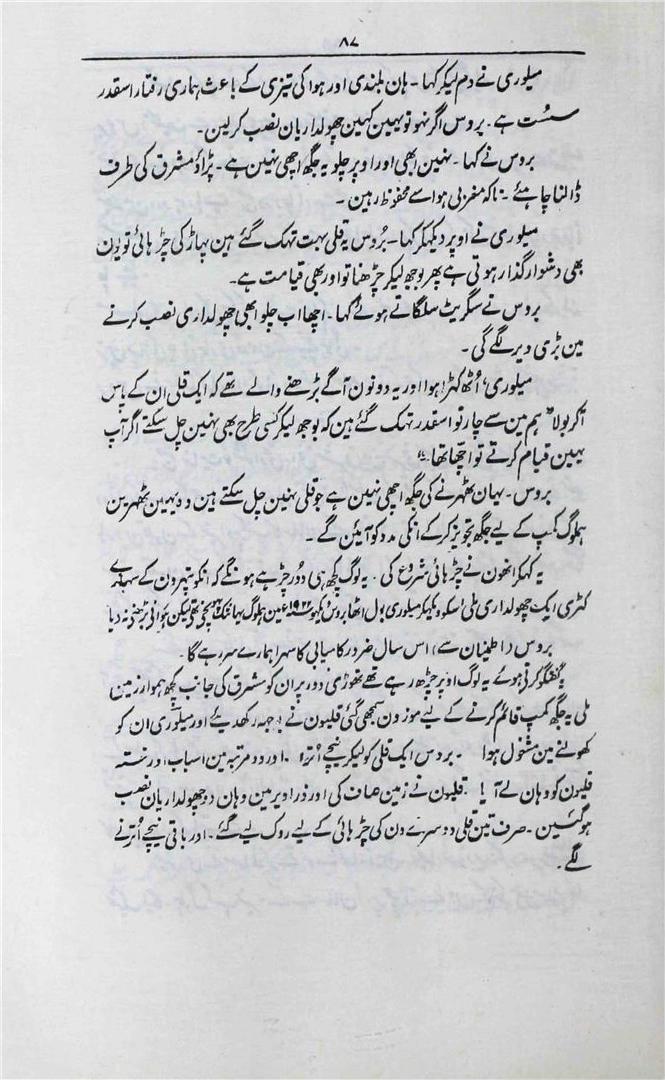 ۸۷
میلوری نے دم لیکر کہا۔ ہان بلندی اور ہوا کی تیزی کے باعث ہماری رفتار اسقدر
سست ہے۔ بروس اگر نہو تو یہین کہین چھولداریان نصب کرلین۔
بروس نے کہا۔ نہین ابھی اور اوپر چلو یہ جگھ اچھی نہین ہے۔ پڑاؤ مشرق کی طرف
ڈالنا چاہئے۔ تاکہ مغربی ہوا سے محفوظ رہین۔
میلوری نے اوپر دیکھکر کہا۔ بروس یہ قلی بہت تھک گئے ہین پہاڑ کی چڑھائی تو یون
بھی دشوار گذار ہوتی ہے پھر بوجھ لیکر چڑھنا تو اور بھی قیامت ہے۔
بروس نے سگریٹ سلگاتے ہوئے کہا۔ اچھا اب چلو ابھی چھولداری نصب کرنے
مین بڑی دیر لگے گی۔
میلوری، اُٹھ کھڑا ہوا اور یہ دونون آگے بڑھنے والے تھے کہ ایک قلی ان کے پاس
آکر بولا "ہم مین سے چار تو اسقدر تھک گئے ہین کہ بوجھ لیکر کسی طرح بھی نہین چل سکتے اگر آپ
یہین قیام کرتے تو اچھا تھا۔"
بروس۔ یہان ٹھہرنے کی جگھ اچھی نہین ہے جو قلی نہین چل سکتے ہین وہ یہین ٹھہرین
ہملوگ کمپ کے لیے جگھ تجویز کرکے انکی مدد کو آئین گے۔
یہ کہکر انھون نے چڑھائی شروع کی۔ یہ لوگ کچھ ہی دور چڑھے ہونگے کہ انکو پتھرون کے سہارے
کھڑی ایک چھولداری ملی اسکو دیکھکر میلوری بول اٹھا بروس دیکھو ۱۹۲۲ء مین ہملوگ یہانتک پہنچے تھے لیکن ہوا نے بڑھنے نہ دیا
بروس (اطمینان سے) اس سال ضرور کامیابی کا سہرا ہمارے سر رہے گا۔
یہ گفتگو کرتے ہوئے یہ لوگ اوپر چڑھ رہے تھے تھوڑی دور پر ان کو مشرق کی جانب کچھ ہموار زمین
ملی یہ جگھ کمپ قائم کرنے کے لیے موزون سمجھی گئی قلیون نے بوجھ رکھدیے اور میلوری ان کو
کھولنے مین مشغول ہوا۔ بروس ایک قلی کو لیکر نیچے اُترا۔ اور دو مرتبہ مین اسباب اور خستہ
قلیون کو وہان لے آیا۔ قلیون نے زمین صاف کی اور ذرا دیر مین وہان دو چھولداریان نصب
ہوگئین۔ صرف تین قلی دوسرے دن کی چڑھائی کے لیے روک لیے گئے۔ اور باقی نیچے اُترنے
لگے۔